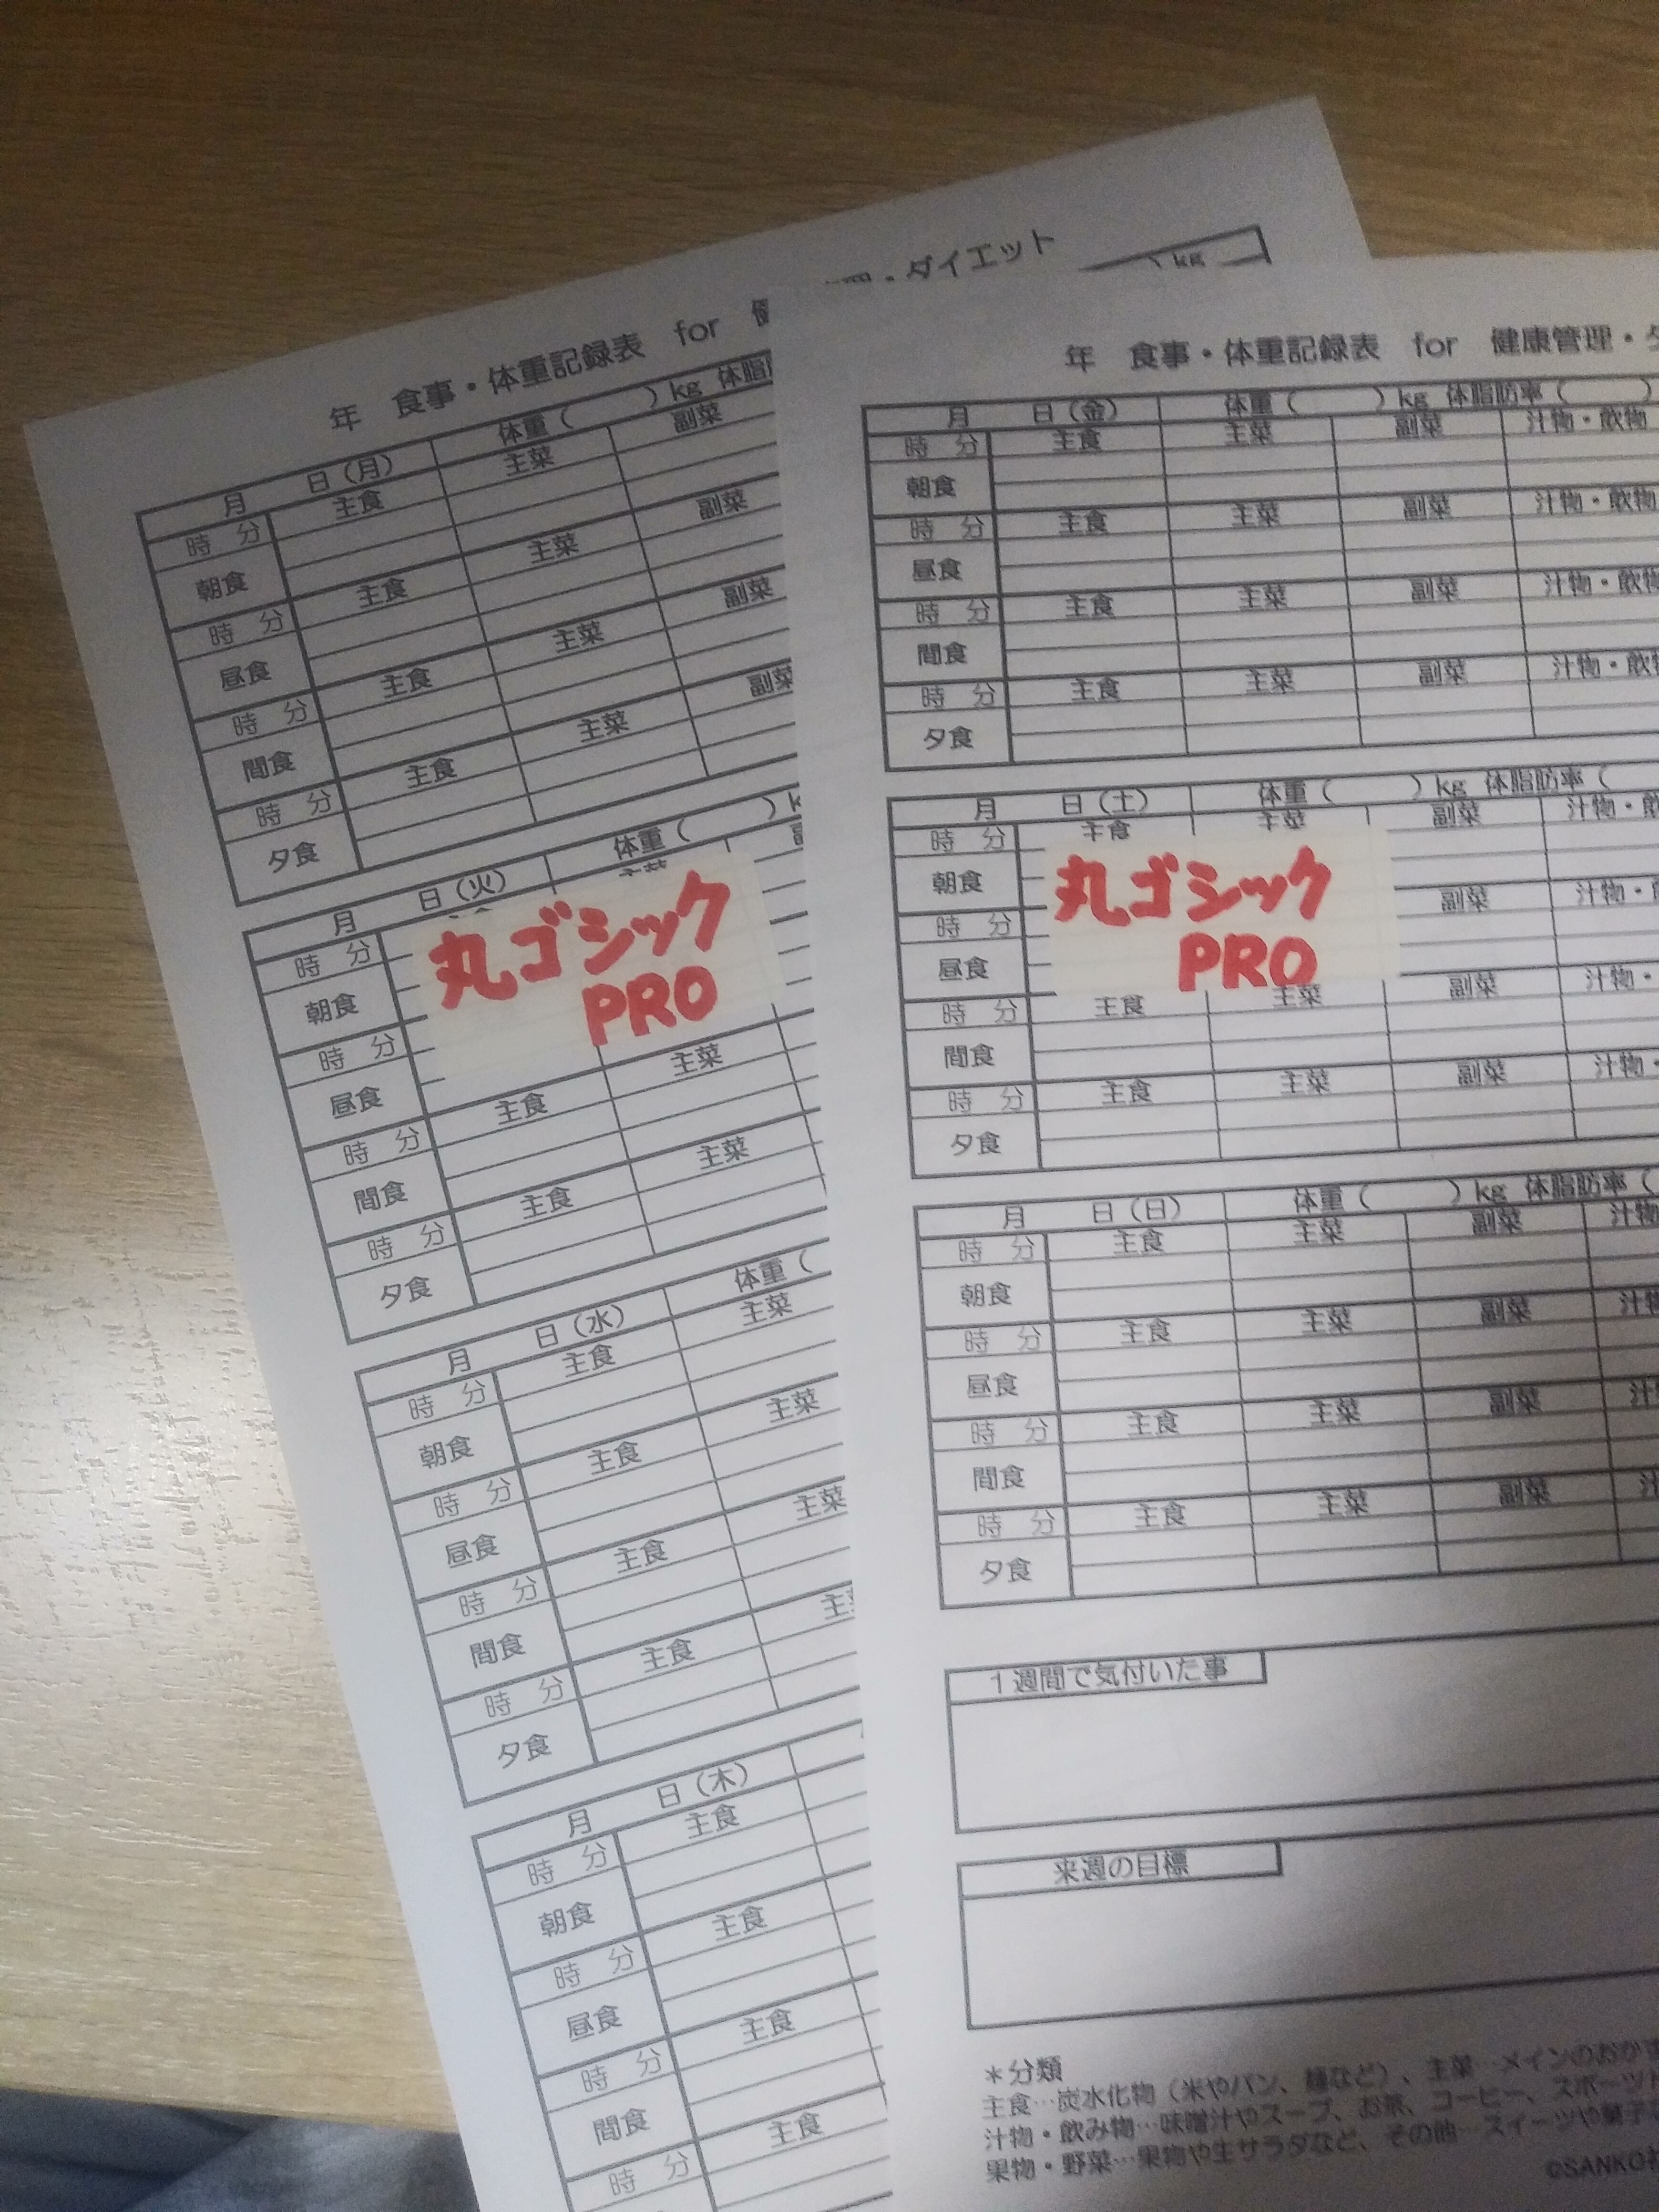 年 食事・体重記録表 for
・ダイエット
kg
月 日（月） 体重（ ）kg 体脂
時 分 主食 主菜 副菜
朝食
時 分 主食 主菜 副菜
昼食
時 分 主食 主菜 副菜
間食
時 分 主食 主菜 副菜
夕食
月 日（火） 体重（ ）
時 分
朝食
丸ゴシック
PRO
時 分
昼食
時 分 主食 主菜
間食
時 分 主食 主菜
夕食
月 日（水） 体重（
時 分 主食 主菜
朝食
時 分 主食 主菜
昼食
時 分 主食 主菜
間食
時 分 主食
夕食
月 日（木）
時 分 主食
朝食
時 分 主食
昼食
時 分 主食
間食
時 分 主食
年 食事・体重記録表 for 健康管理・
月 日（金） 体重（ ）kg 体脂肪率（ ）
時 分 主食 主菜 副菜 汁物・飲物
朝食
時 分 主食 主菜 副菜 汁物・飲物
昼食
時 分 主食 主菜 副菜 汁物・飲物
間食
時 分 主食 主菜 副菜 汁物・飲
夕食
月 日（土） 体重（ ）kg 体脂肪率（
時 分 主食 主菜 副菜 汁物・飲
朝食
丸ゴシック
PRO
時 分 副菜 汁物・
昼食
時 分 主食 主菜 副菜 汁物・
間食
時 分 主食 主菜 副菜 汁物・
夕食
月 日（日） 体重（ ）kg 体脂肪率（
時 分 主食 主菜 副菜 汁物
朝食
時 分 主食 主菜 副菜 汁物
昼食
時 分 主食 主菜 副菜 汁
間食
時 分 主食 主菜 副菜 汁
夕食
１週間で気付いた事
来週の目標
＊分類
主食…炭水化物（米やパン、麺など）、主菜…メインのおかず
汁物・飲み物…味噌汁やスープ、お茶、コーヒー、スポーツ
果物・野菜…果物や生サラダなど、その他…スイーツや菓子
©SANKO